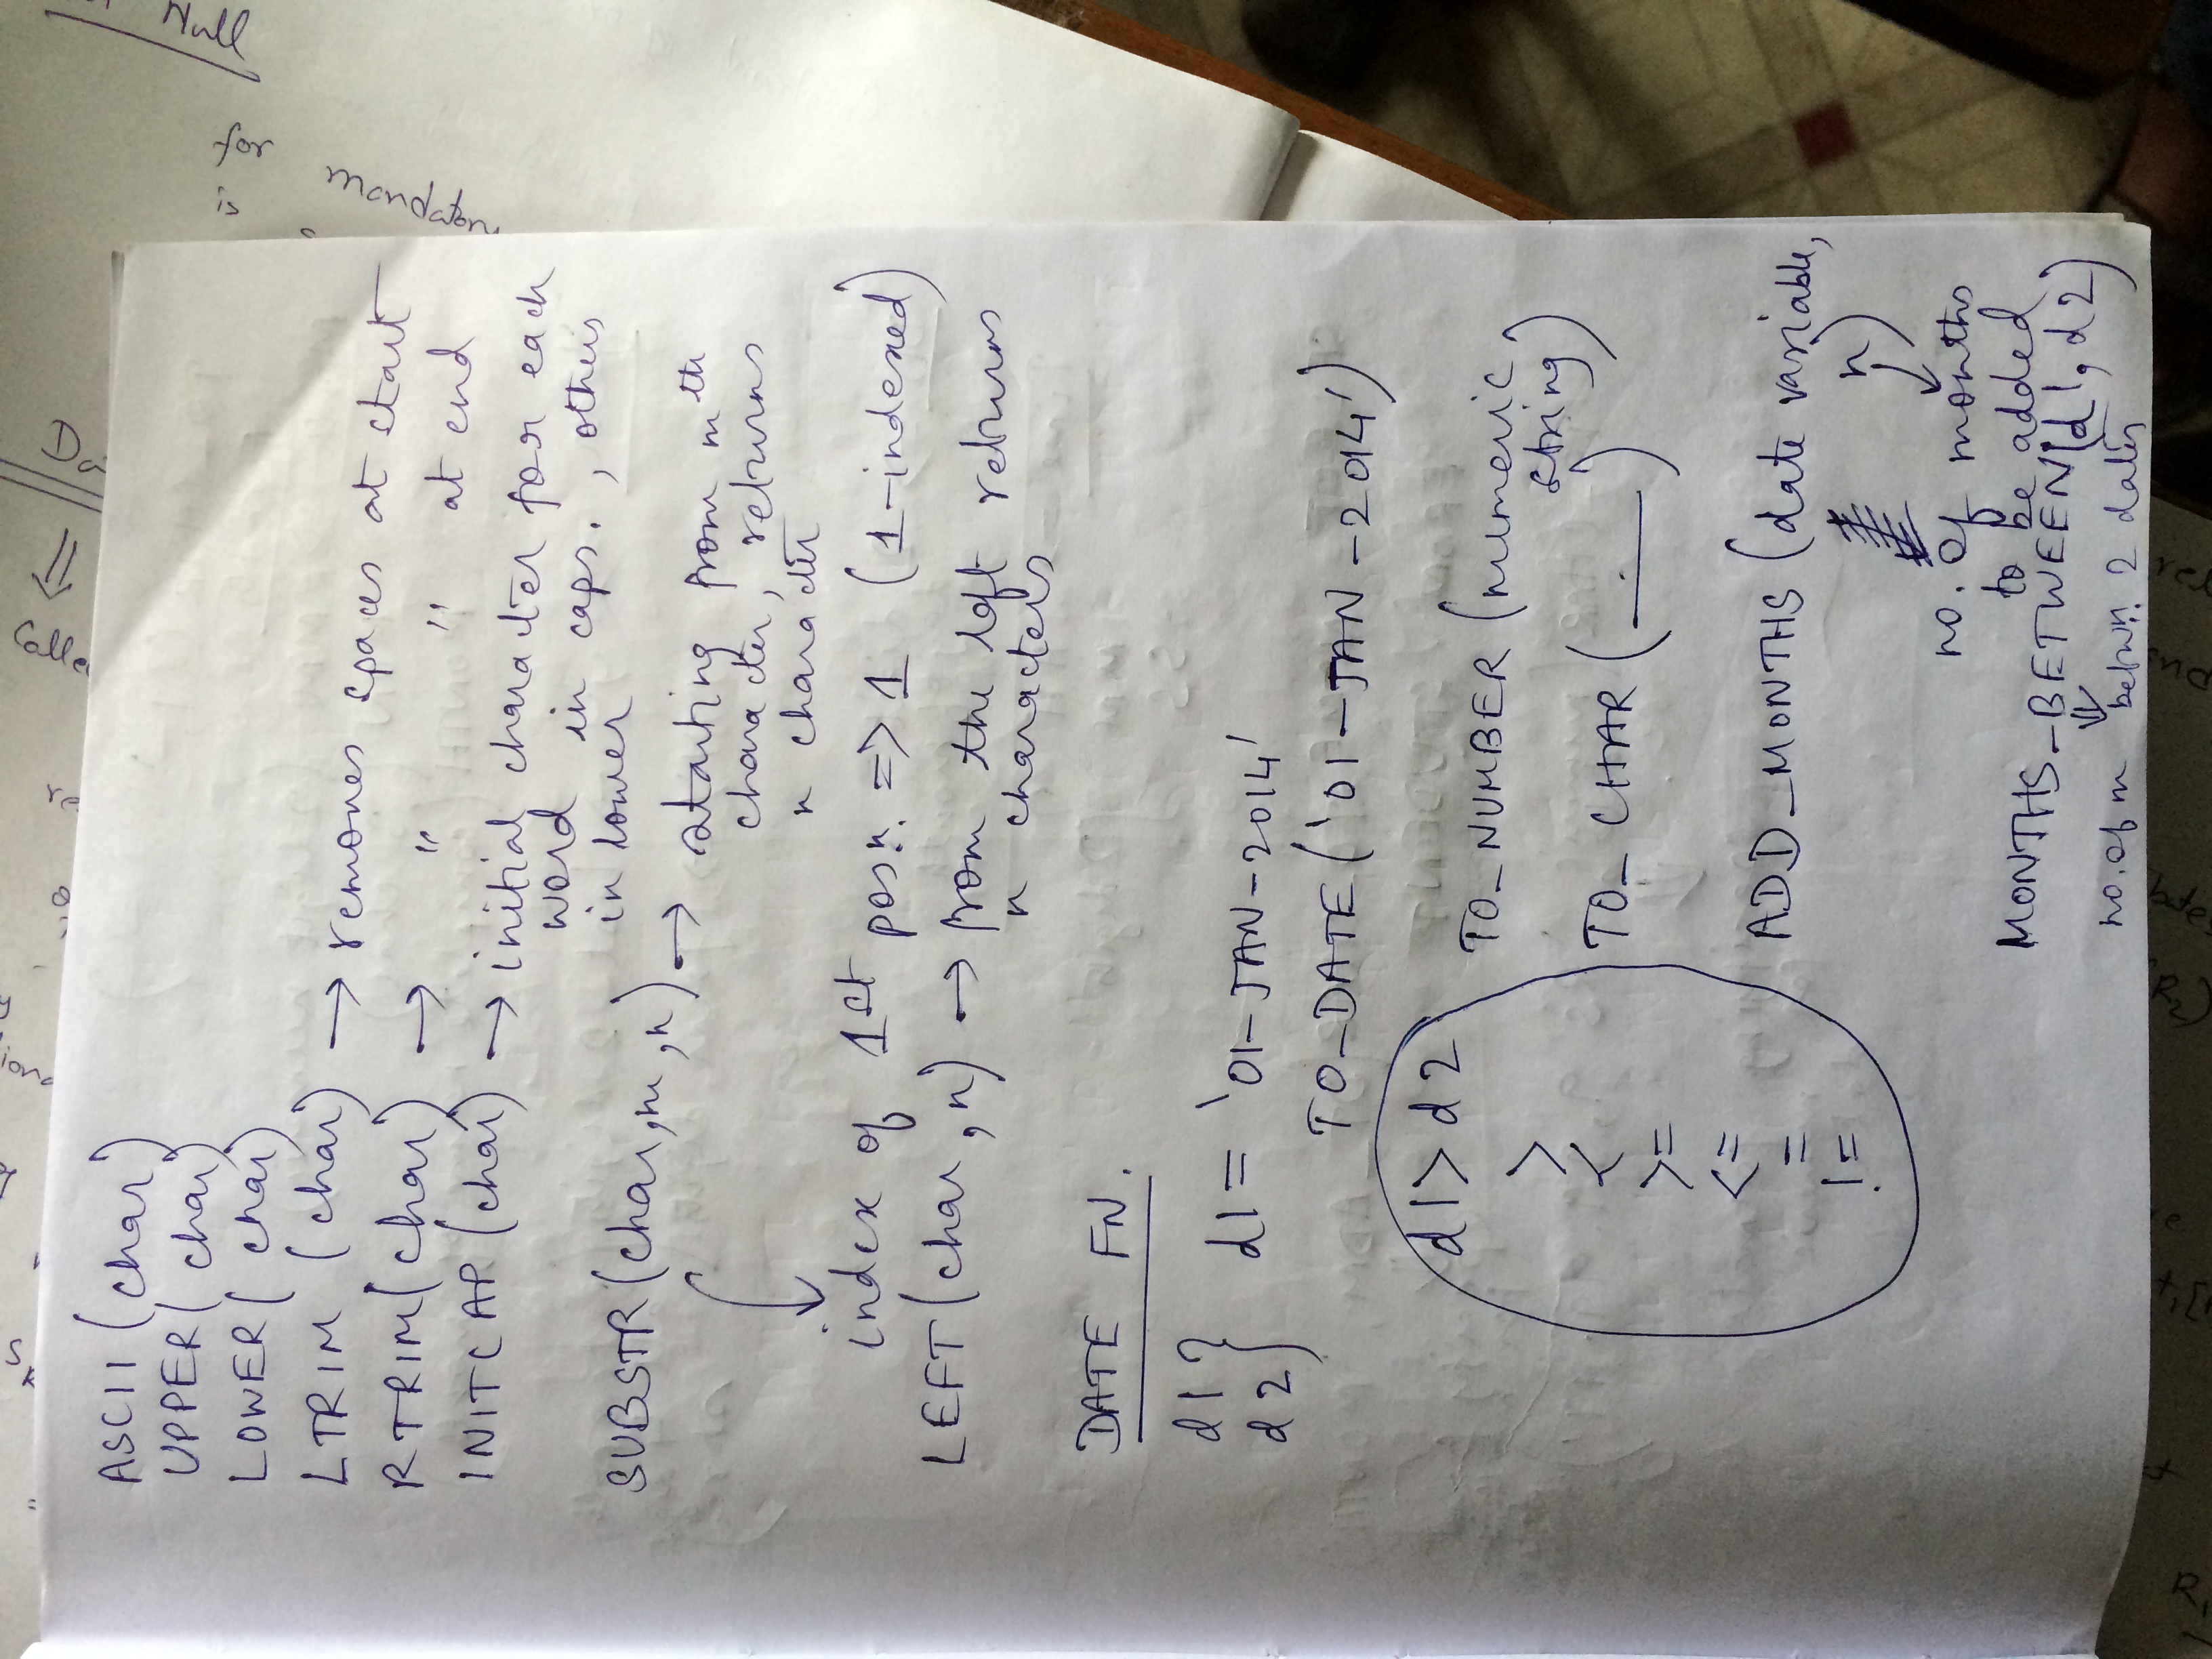 ASCII (char)
UPPER( char)
LOWER( char)
LTRIM (char) → removes spaces at start
RTRIM(char) → " " at end
INITCAP (char) → initial character for each
word in caps. , others
in lower
SUBSTR(char,m,n) → starting from mth
character, returns
n character
index of 1st posn. => 1 (1-indexed)
LEFT(char,n) → from the left returns
n characters
DATE FN.
d1
d2 } d1 = '01-JAN-2014'
TO_DATE ('01-JAN-2014')
d1 > d2
>
<
>=
<=
=
!=
TO_NUMBER (numeric
string)
TO_CHAR ( ___ )
ADD_MONTHS (date variable,
n)
no. of months
to be added
MONTHS_BETWEEN(d1, d2)
no. of m betwn. 2 dates
Null
for
is
mandatory
Da
⇓